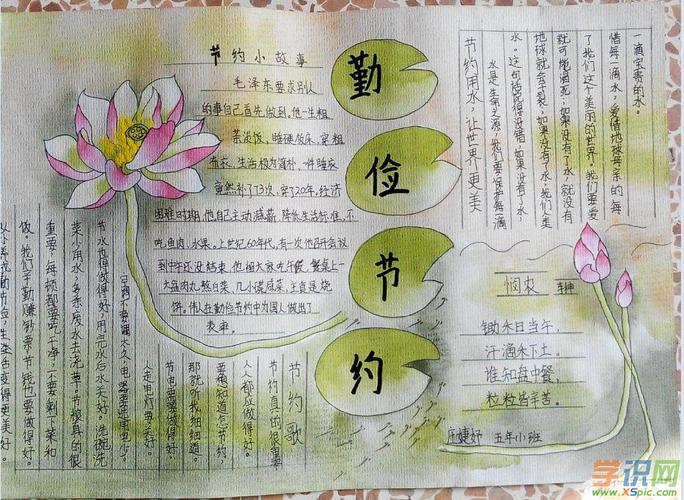 勤
俭
节
约
节约小故事
毛泽东要求别人
的事自己首先做到。他一生粗
茶淡饭，睡硬板床，穿粗
布衣，生活极为简朴，一件睡衣
竟然补了73次，穿了20年。经济
困难时期，他自己主动减薪、降低生活标准，不
吃鱼肉、水果。上世纪60年代，有一次他召开会议
到中午还没结束，他留大家吃午饭，餐桌上一
大盆肉丸熬白菜、几小碟咸菜，主食是烧
饼。伟人在勤俭节约中为国人做出了
表率。
节约用水，让世界更美
水是生命之源，我们要保护每一滴
水。这句话说得没错，如果没有了水，
地球就会干裂；如果没有了水，我们人类
就可能渴死；如果没有了水，就没有
了我们这个美丽的世界。我们要爱
惜每一滴水，爱惜地球母亲的每
一滴宝贵的水。
悯农
锄禾日当午，
汗滴禾下土。
谁知盘中餐，
粒粒皆辛苦。
五年小班
节约歌
节约真的很重要，
人人都应做得好。
要想知道怎节约，
那就听我细细道。
节电要要做得好，
人走电灯要关好。
节水也得做得好，用完水后水关好。洗碗洗
菜少用水，多余废水去浇草。节粮真的很
重要，每顿都要吃干净，不要剩下菜和
做。我们辛勤赚钞票，节钱也要做得好。
从小养成勤节俭，生活会变得更美好。
学识网
www.XSpic.com